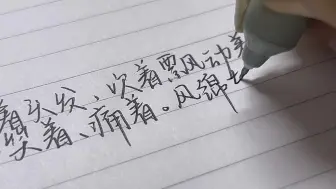 着头发、吹着飘风动着
笑着、痛着。风绵